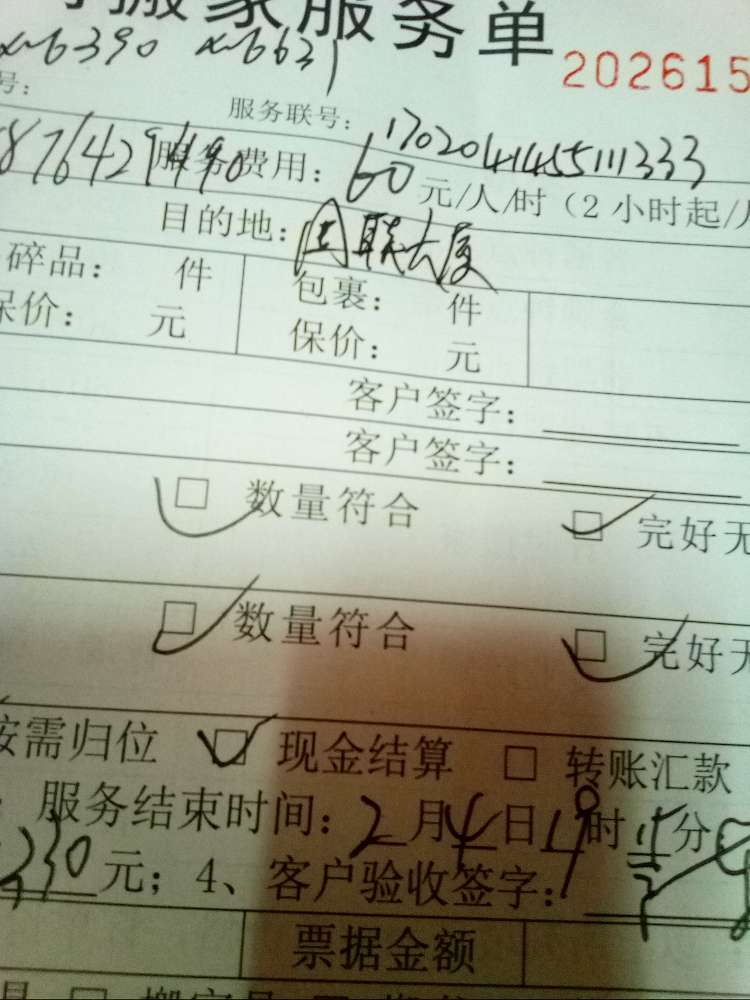 搬家服务单
202615
号：
服务联号：170204145511333
服务费用：60元/人/时（2小时起/
目的地：国联大厦
碎品： 件 包裹： 件
保价： 元 保价： 元
客户签字：
客户签字：
□ 数量符合 □ 完好无
□ 数量符合 □ 完好无
按需归位 □ 现金结算 □ 转账汇款
服务结束时间：2月4日19时15分
230元；4、客户验收签字：
票据金额